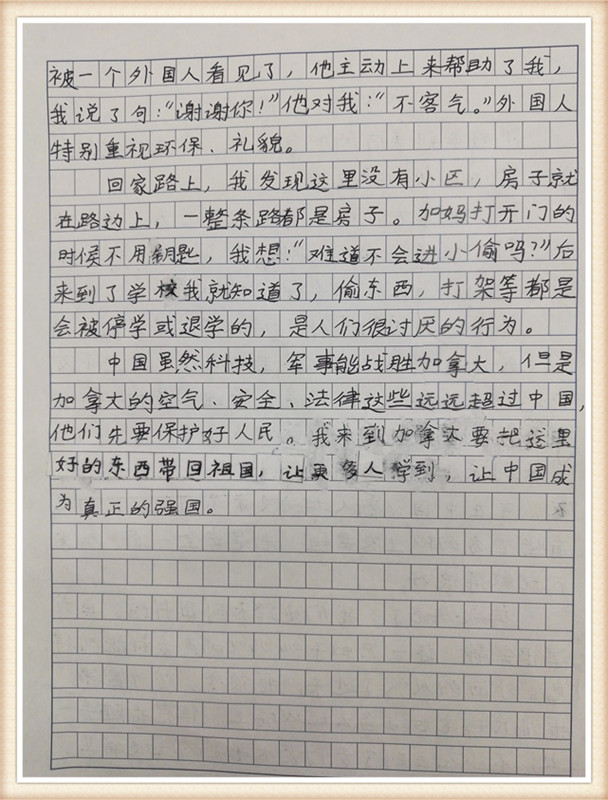 被一个外国人看见了，他主动上来帮助了我，
我说了句：“谢谢你！”他对我：“不客气。”外国人
特别重视环保、礼貌。
回家路上，我发现这里没有小区，房子就
在路边上，一整条路都是房子。加妈打开门的
时候不用钥匙，我想：“难道不会进小偷吗？”后
来到了学校我就知道了，偷东西，打架等都是
会被停学或退学的，是人们很讨厌的行为。
中国虽然科技，军事能战胜加拿大，但是
加拿大的空气、安全、法律这些远远超过中国，
他们先要保护好人民。我来到加拿大要把这里
好的东西带回祖国，让更多人学到，让中国成
为真正的强国。